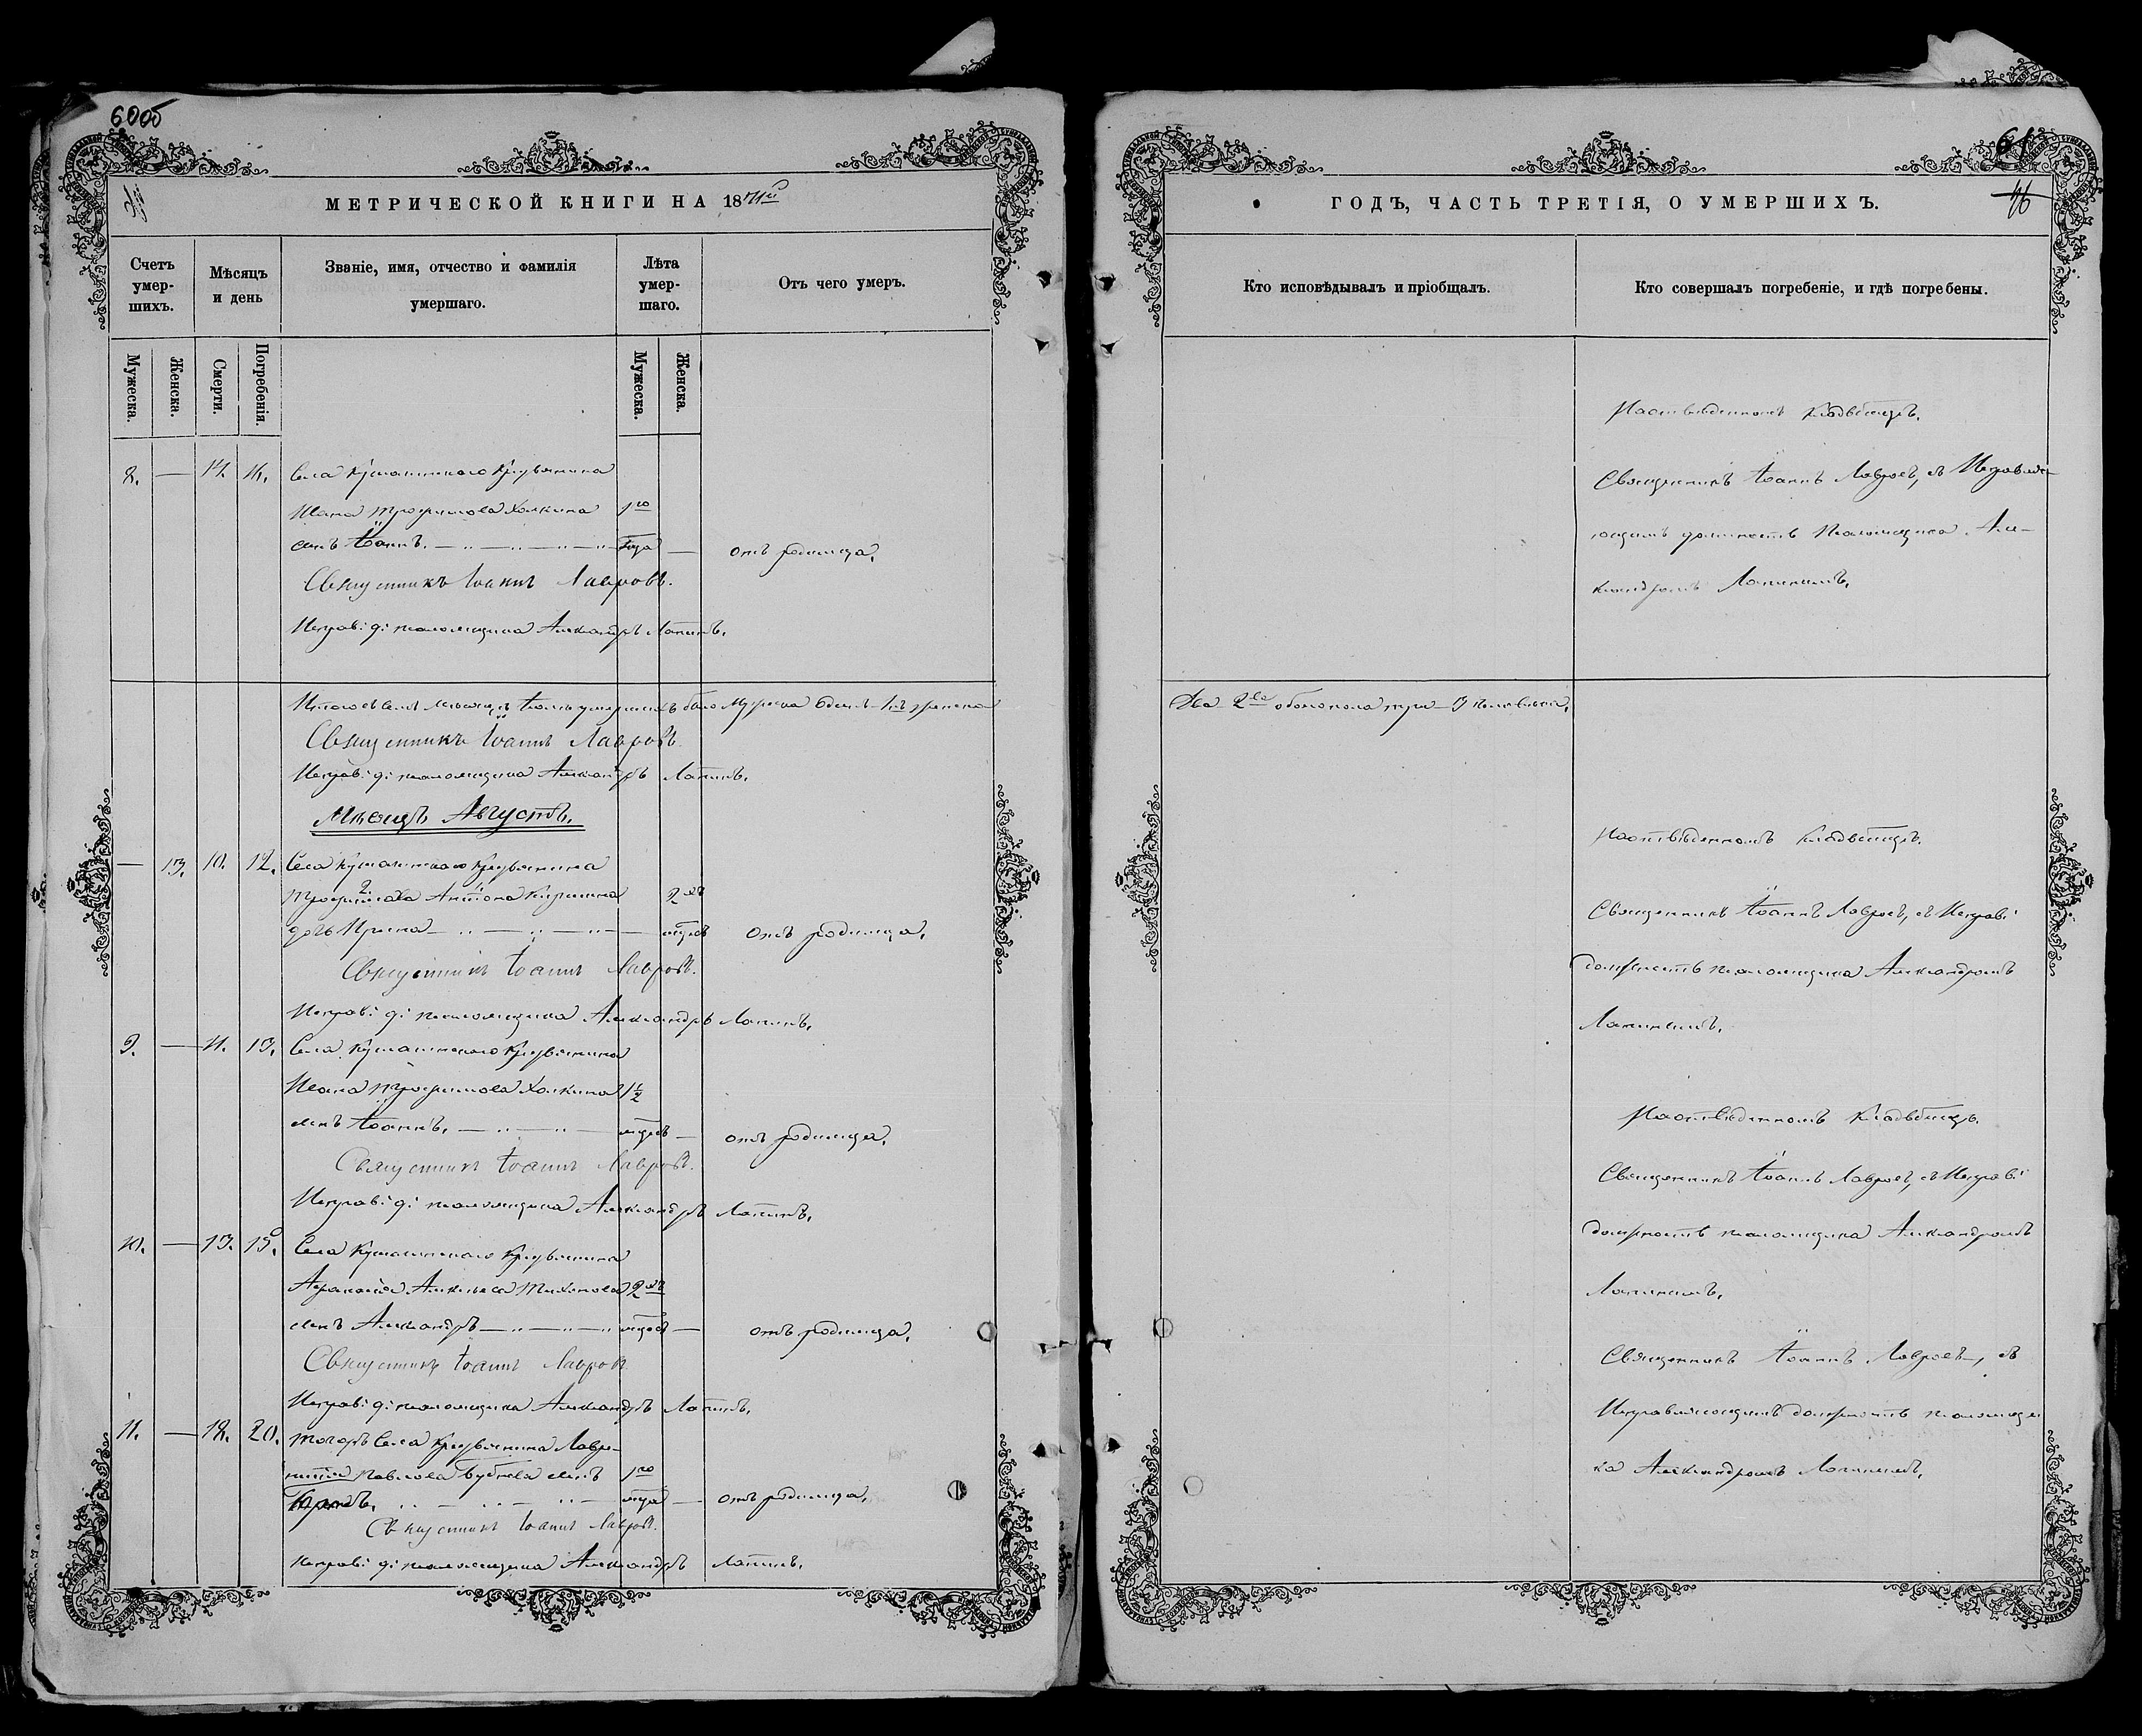 60об
МЕТРИЧЕСКОЙ КНИГИ НА 18
Счетъ умер-шихъ.
Мѣсяцъ и день
Званіе, имя, отчество и фамилія умершаго.
Лѣта умер-шаго.
Отъ чего умеръ.
Мужеска.
Женска.
Смерти.
Погребенія.
Мужеска.
Женска.
8. — 14. 16. Села крестьянина
Ивана Трофимова Холкина 1го
сынъ Іоаннъ. года — отъ родимца.
Священникъ Іоаннъ Лавровъ.
Исправ: д: псаломщика Александръ Лапинъ.
Итого въ Іюлѣ умершихъ было Мужеска одинъ — 1нъ женска
Священникъ Іоаннъ Лавровъ.
Исправ: д: псаломщика Александръ Лапинъ.
Мѣсяцъ Августъ.
— 13. 10. 12. Села крестьянина
Трофима Антона 2хъ
дочь Ирина — отъ родимца.
Священникъ Іоаннъ Лавровъ.
Исправ: д: псаломщика Александръ Лапинъ.
9. — 11. 13. Села крестьянина
Ивана Трофимова Холкина 1½
сынъ Іоаннъ. — отъ родимца.
Священникъ Іоаннъ Лавровъ.
Исправ: д: псаломщика Александръ Лапинъ.
10. — 13. 15. Села крестьянина
Тихонова 2хъ
сынъ Александръ — отъ родимца.
Священникъ Іоаннъ Лавровъ
Исправ: д: псаломщика Александръ Лапинъ.
11. — 18. 20. Тогожъ Села крестьянина Лавре-
нтія Павлова сынъ 1го
— отъ родимца.
Священникъ Іоаннъ Лавровъ.
Исправ: д: псаломщика Александръ Лапинъ.
61
ГОДЪ, ЧАСТЬ ТРЕТІЯ, О УМЕРШИХЪ.
Кто исповѣдывалъ и пріобщалъ.
Кто совершалъ погребеніе, и гдѣ погребены.
На отведенномъ кладбищѣ.
Священникъ Іоаннъ Лавровъ, съ Исправля-
ющимъ должность Псаломщика Але-
ксандромъ Лапинымъ.
Два 2ва обоего пола три — 3 человѣка.
На отведенномъ кладбищѣ.
Священникъ Іоаннъ Лавровъ, съ Исправ:
должность псаломщика Александромъ
Лапинымъ.
На отведенномъ кладбищѣ.
Священникъ Іоаннъ Лавровъ, съ Исправ:
должность псаломщика Александромъ
Лапинымъ.
Священникъ Іоаннъ Лавровъ, съ
Исправляющимъ должность псаломщи-
ка Александромъ Лапинымъ.